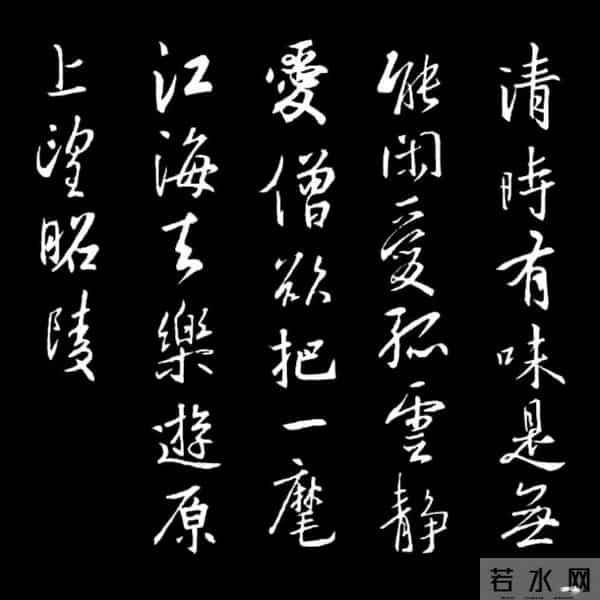 清時有味是無
能閑愛孤雲靜
愛僧欲把一麾
江海去樂遊原
上望昭陵
若水网